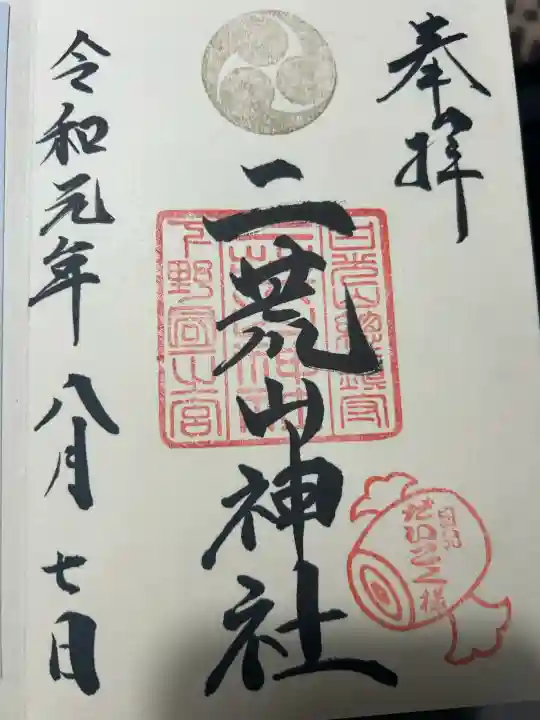 奉拝
日光山總鎮守
二荒山神社
下野國一之宮
二荒山神社
日光
だいこく様
令和元年八月七日